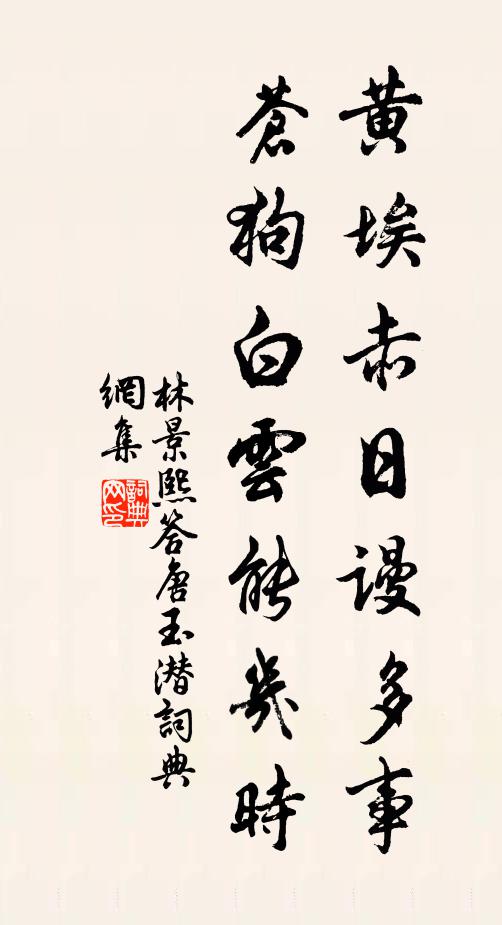 黃埃赤日謾多事
蒼狗白雲能幾時
林景熙答唐玉潛詞典
網集
詞典網印